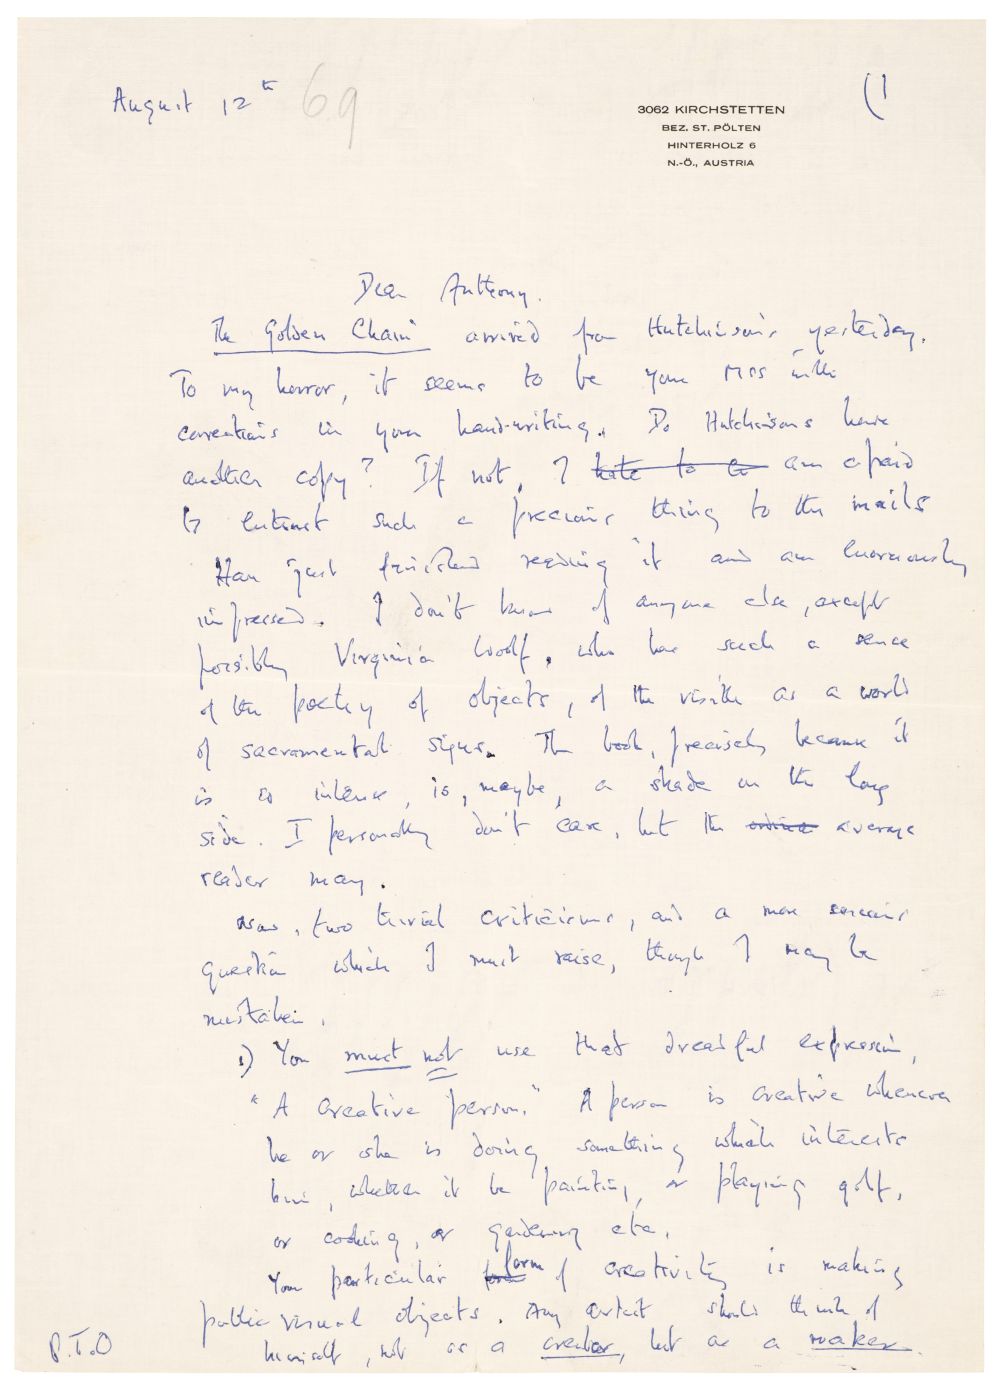 August 12th 69
(1
3062 KIRCHSTETTEN
BEZ. ST. PÖLTEN
HINTERHOLZ 6
N.-Ö., AUSTRIA
Dear Anthony.
The Golden Chain arrived from Hutchinson's yesterday.
To my horror, it seems to be your MSS with
corrections in your hand-writing. Do Hutchinsons have
another copy? If not, I hate to am afraid
to entrust such a precious thing to the mails
Have just finished reading it and am enormously
impressed. I don't know of anyone else, except
possibly Virginia Woolf, who has such a sense
of the poetry of objects, of the visible as a world
of sacramental signs. The book, precisely because it
is so intense, is, maybe, a shade on the long
side. I personally don't care, but the average
reader may.
Now, two trivial criticisms, and a more serious
question which I must raise, though I may be
mistaken.
1) You must not use that dreadful expression,
"A creative person." A person is creative whenever
he or she is doing something which interests
him, whether it be painting, or playing golf,
or cooking, or gardening etc.
Your particular form of creativity is making
public visual objects. Any artist should think of
himself, not as a creator, but as a maker.
P.T.O